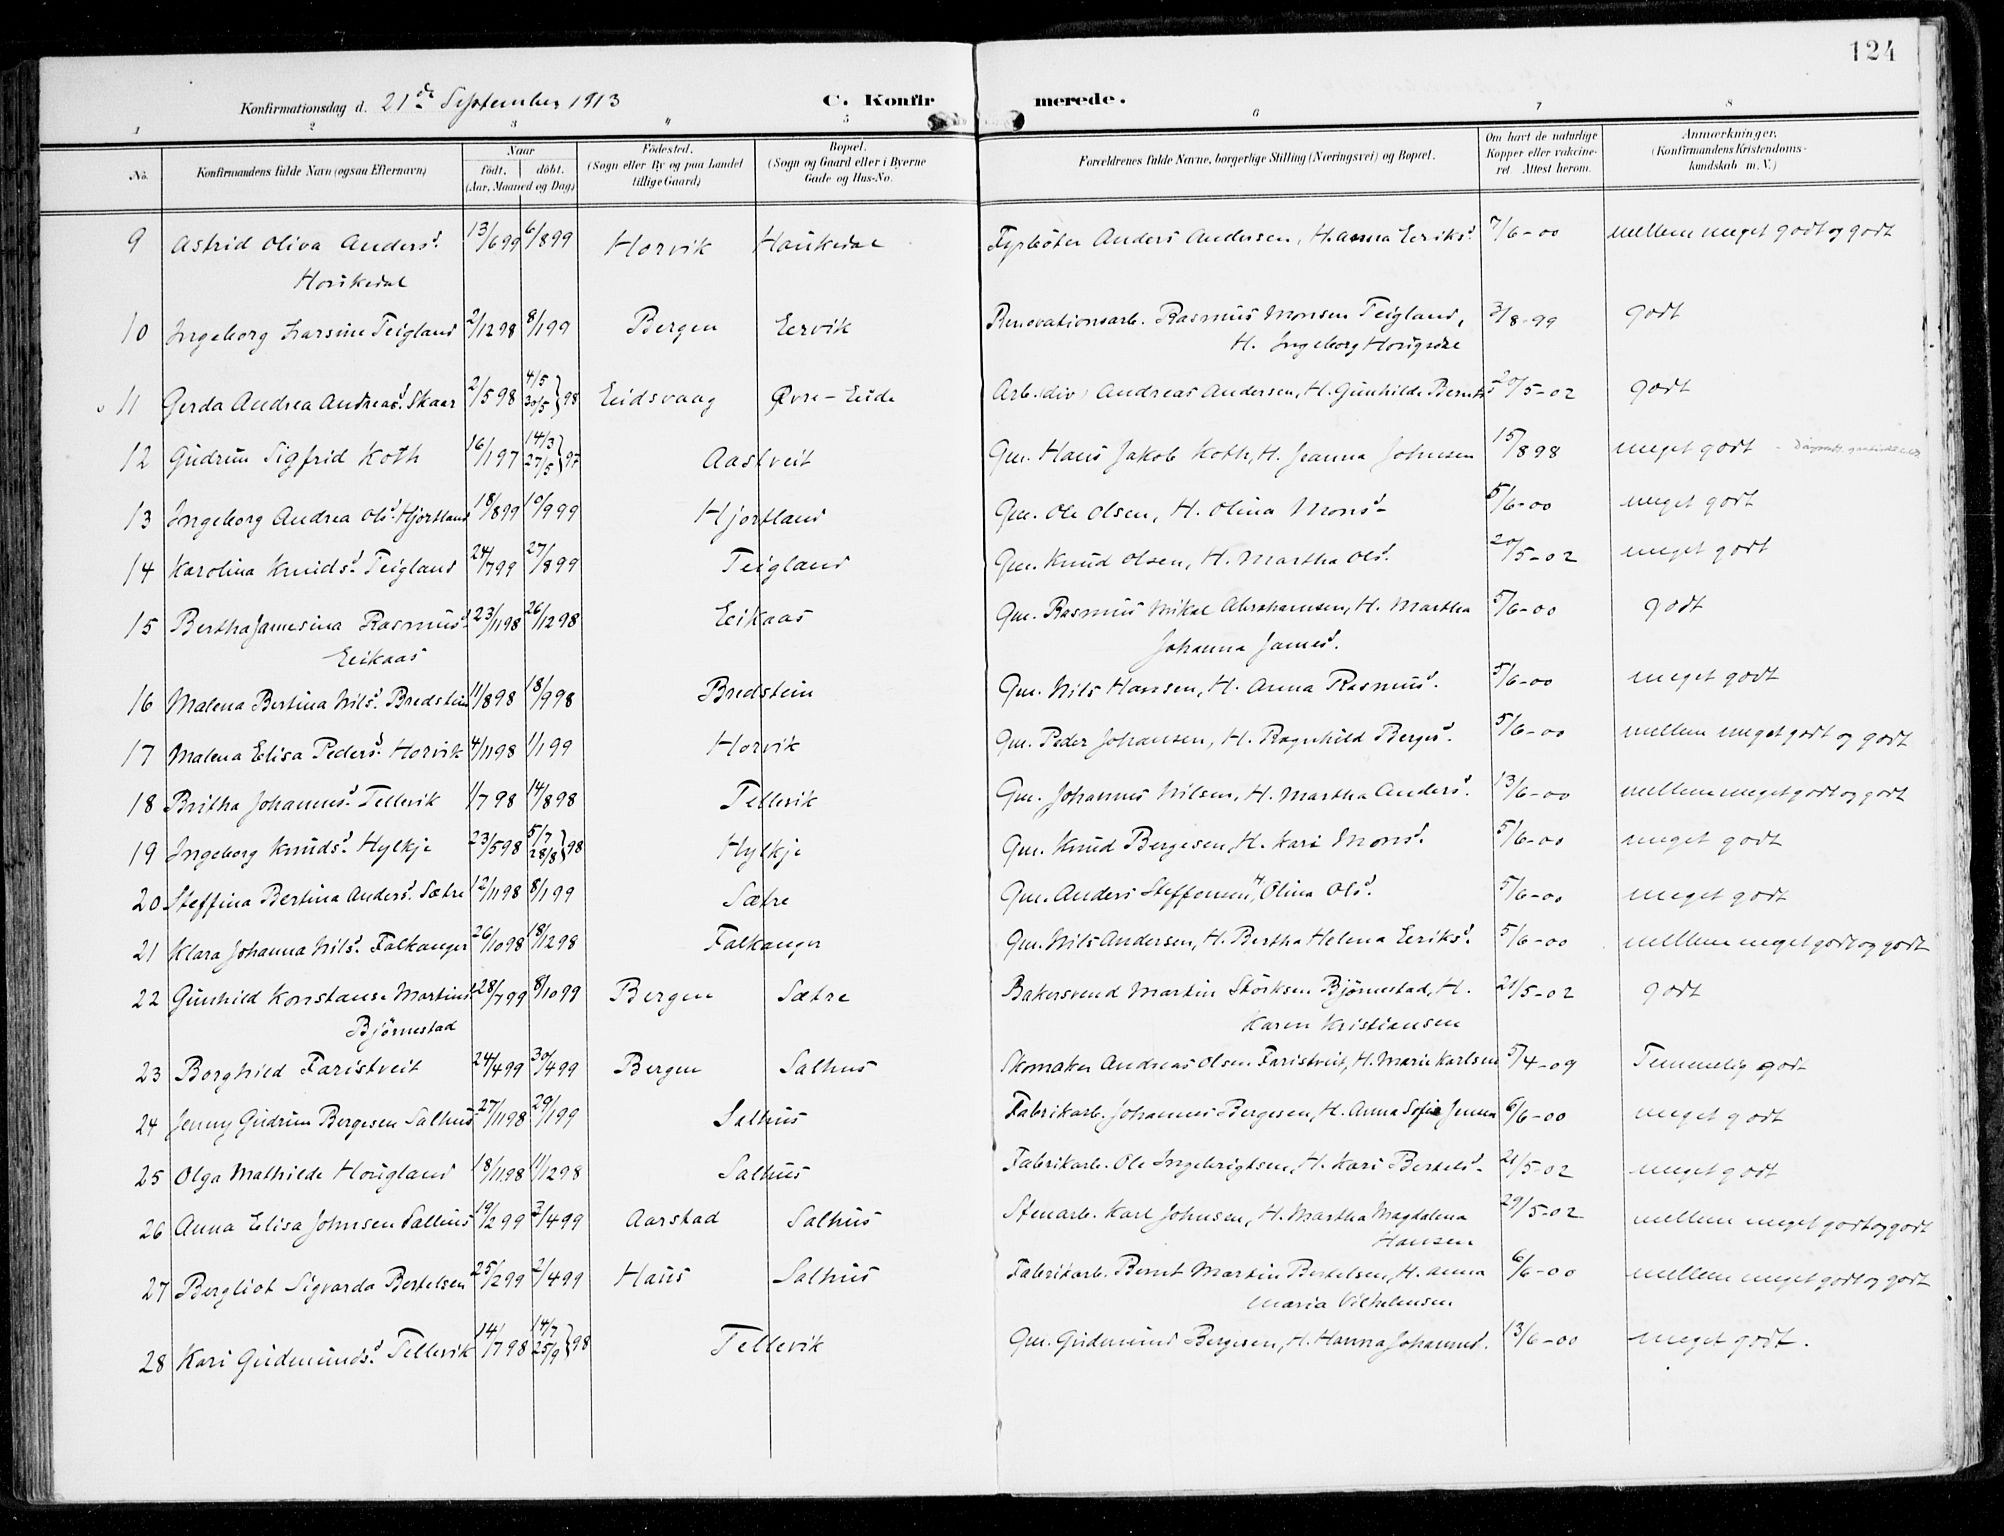 124
Konfirmationsdag d. 21de September 1913 C. Konfirmerede.
1 2 3 4 5 6 7 8
No. Konfirmandens fulde Navn (ogsaa Efternavn) Naar født. døbt. (Aar, Maaned og Dag) Fødested. (Sogn eller By og paa Landet tillige Gaard) Bopæl. (Sogn og Gaard eller i Byerne Gade og Hus-No. Forældrenes fulde Navne, borgerlige Stilling (Næringsvei) og Bopæl. Om havt de naturlige Kopper eller vakcineret. Attest herom. Anmærkninger. (Konfirmandens Kristendomskundskab m.V.)
9 Astrid Oliva Andersd. 13/6 99 6/8 99 Horvik Haukedal Fyrbøter Anders Andersen, H. Anna Eriksd. 7/6-00 mellem meget godt og godt
Houkedal
10 Ingeborg Larsine Teigland 2/12 98 8/1 99 Bergen Eervik Renovationsarb. Rasmus Monsen Teigland, 3/8-99 godt
H. Ingeborg Hougsøre
11 Gerda Andrea Andreasd. Skaar 2/5 98 4/5 30/5 } 98 Eidsvaag Øvre-Eide Arb. (div) Andreas Andersen, H. Gunhilde Berntsd 20/5-02 godt
12 Gudrun Sigfrid Koth 16/1 97 14/3 27/5 } 97 Aastveit Gm. Hans Jakob Koth, H. Jeanna Johnsen 15/8 98 meget godt
13 Ingeborg Andrea Olsd. Hjortland 18/8 99 10/9 99 Hjortland Gm. Ole Olsen, H. Olina Monsd. 5/6-00 meget godt
14 Karolina Knudsd. Teigland 24/7 99 27/8 99 Teigland Gm. Knud Olsen, H. Martha Olsd. 20/5-02 meget godt
15 Bertha Jamesina Rasmusd. 23/11 98 26/12 98 Eikaas Gm. Rasmus Mikal Abrahamsen, H. Martha 5/6-00 godt
Eikaas Johanna Jamesd.
16 Malena Bertina Nilsd. Bredstein 11/8 98 18/9 98 Bredstein Gm. Nils Hansen, H. Anna Rasmusd. 5/6-00 meget godt
17 Malena Elisa Pedersd. Horvik 4/11 98 1/1 99 Horvik Gm. Peder Johansen, H. Ragnhild Bergesd. 5/6-00 mellem meget godt og godt
18 Britha Johannesd. Tellevik 1/7 98 14/8 98 Tellevik Gm. Johannes Nilsen, H. Martha Andersd. 13/6-00 mellem meget godt og godt
19 Ingeborg Knudsd. Hylkje 23/5 98 5/7 28/8 } 98 Hylkje Gm. Knud Bergesen, H. Kari Monsd. 5/6-00 meget godt
20 Steffina Bertina Andersd. Sætre 12/11 98 8/1 99 Sætre Gm. Anders Steffensen, H. Olina Olsd. 5/6-00 meget godt
21 Klara Johanna Nilsd. Falkanger 26/10 98 18/12 98 Falkanger Gm. Nils Andersen, H. Bertha Helena Eeriksd. 5/6-00 mellem meget godt og godt
22 Gunhild Konstanse Martinsd. 28/7 99 8/10 99 Bergen Sætre Bakersvend Martin Størksen Bjørnestad, H. 21/5-02 godt
Bjørnestad Karen Kristiansen
23 Borghild Faristveit 24/4 99 30/4 99 Bergen Salhus Skomaker Andreas Olsen Faristveit, H. Marie Karlsen 5/4-09 Temmelig godt
24 Jenny Gudrun Bergesen Salhus 27/11 98 29/1 99 Salhus Fabrikarb. Johannes Bergesen, H. Anna Sofie Jensen 6/6-00 meget godt
25 Olga Mathilde Hougland 18/11 98 11/12 98 Salhus Fabrikarb. Ole Ingebrigtsen, H. Kari Bertelsd. 21/5-02 meget godt
26 Anna Elisa Johnsen Salhus 19/2 99 2/4 99 Aarstad Salhus Stenarb. Karl Johnsen, H. Martha Magdalena 29/5-02 mellem meget godt og godt
Hansen
27 Bergliot Sigvarda Bertelsen 25/2 99 2/4 99 Haus Salhus Fabrikarb. Bernt Martin Bertelsen, H. Anna 6/6-00 mellem meget godt og godt
Maria Vilhelmsen
28 Kari Gudmundsd. Tellevik 14/7 98 14/7 25/9 } 98 Tellevik Gm. Gudmund Bergesen, H. Hanna Johannesd. 13/6-00 meget godt.